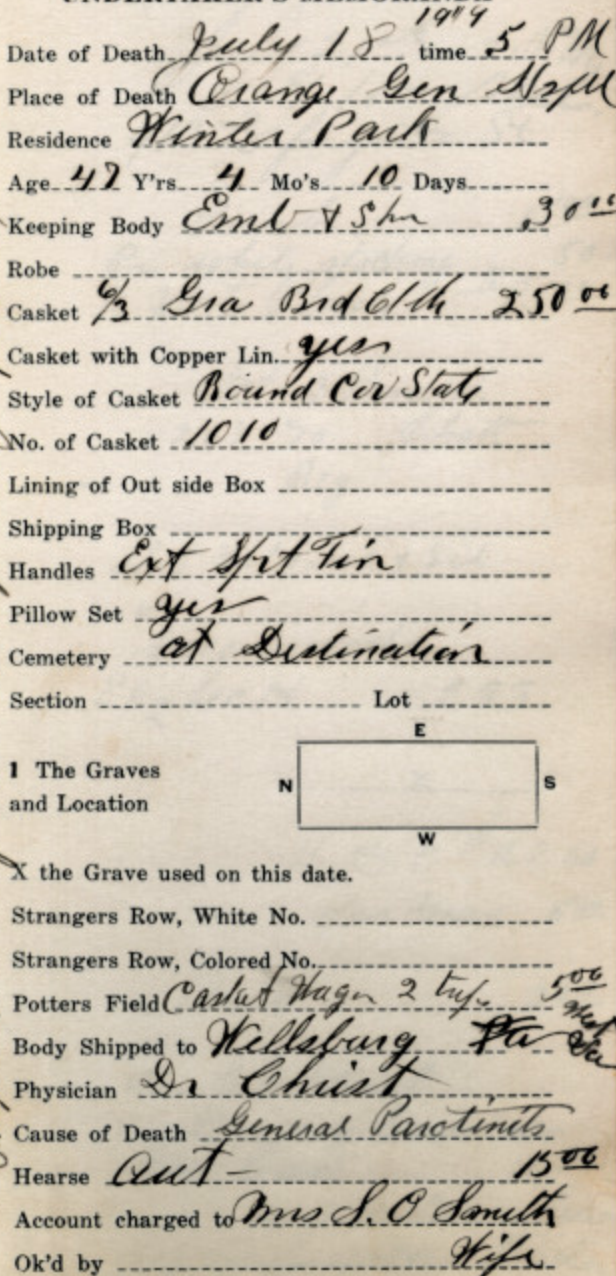 Date of Death July 18 1919 time 5 PM
Place of Death Orange Gen
Residence Winter Park
Age 47 Y'rs 4 Mo's 10 Days
Keeping Body Emb & Shv 30 00
Robe
Casket 6/3 Gra Brd Clth 250 00
Casket with Copper Lin. yes
Style of Casket Round Cor State
No. of Casket 1010
Lining of Out side Box
Shipping Box
Handles Ext
Pillow Set yes
Cemetery at Destination
Section Lot
E
1 The Graves
and Location
N S
W
X the Grave used on this date.
Strangers Row, White No.
Strangers Row, Colored No.
Potters Field Casket Wagon 2 trips 5 00
Body Shipped to Wellsburg West Va
Physician Dr Christ
Cause of Death General Parotinits
Hearse Aut- 15 00
Account charged to Mrs S. O Smith
Ok'd by Wife